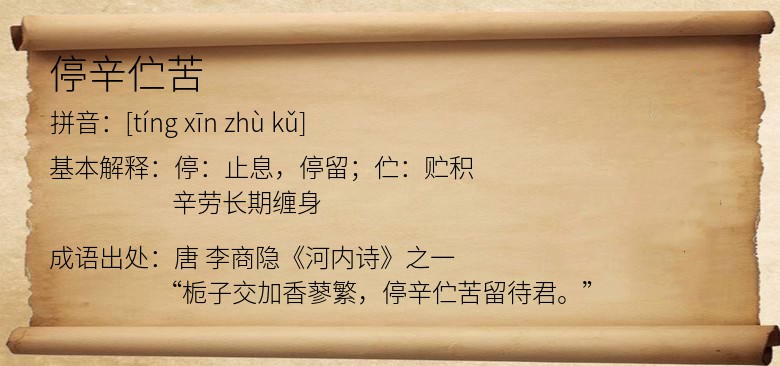 停辛伫苦
拼音：[tíng xīn zhù kǔ]
基本解释：停：止息，停留；伫：贮积
辛劳长期缠身
成语出处：唐 李商隐《河内诗》之一
“栀子交加香蓼繁，停辛伫苦留待君。”